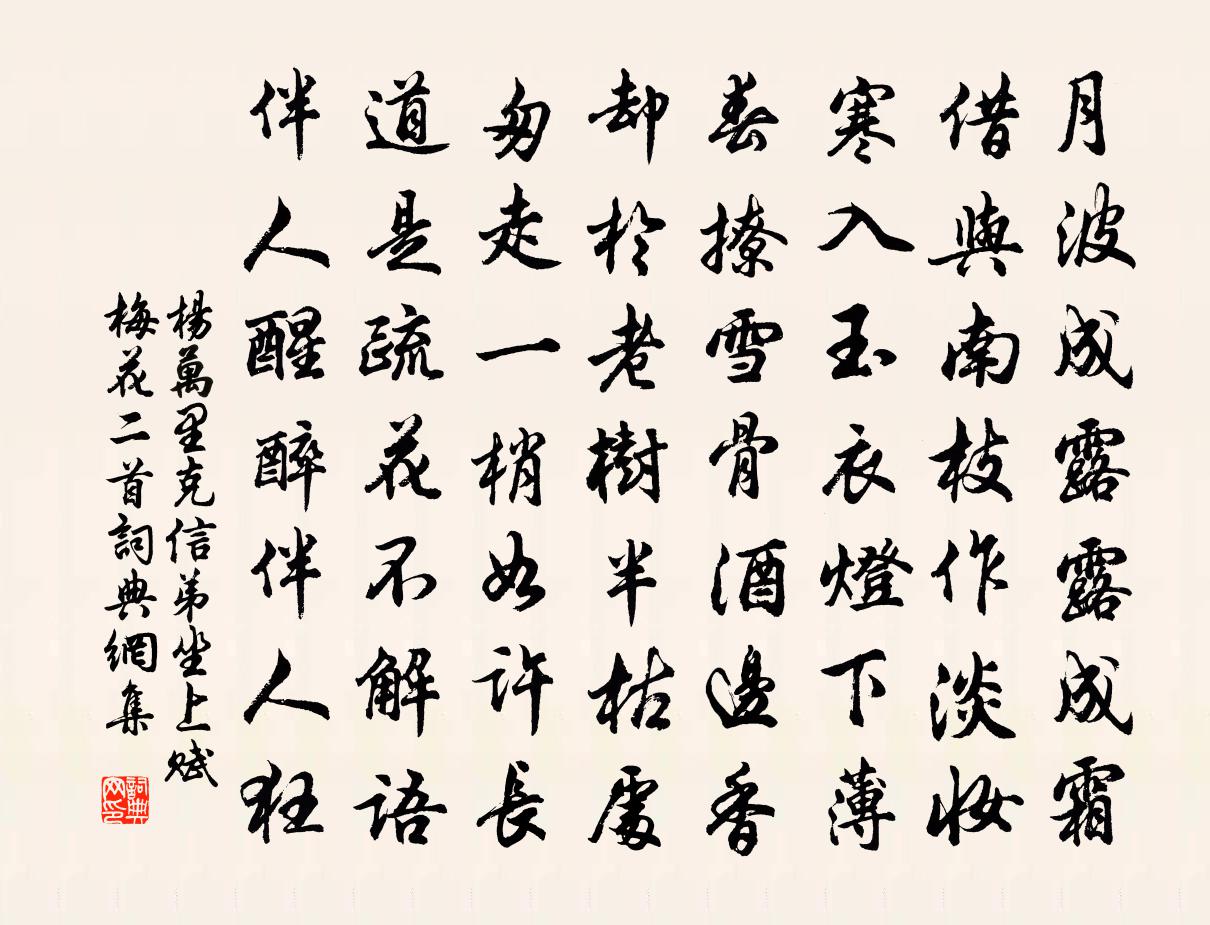 月波成露露成霜
借與南枝作淡妝
寒入玉衣燈下薄
春撩雪骨酒邊香
却於老樹半枯處
忽走一梢如許長
道是疏花不解語
伴人醒醉伴人狂
楊萬里克信弟坐上賦
梅花二首詞典網集
詞典
网印